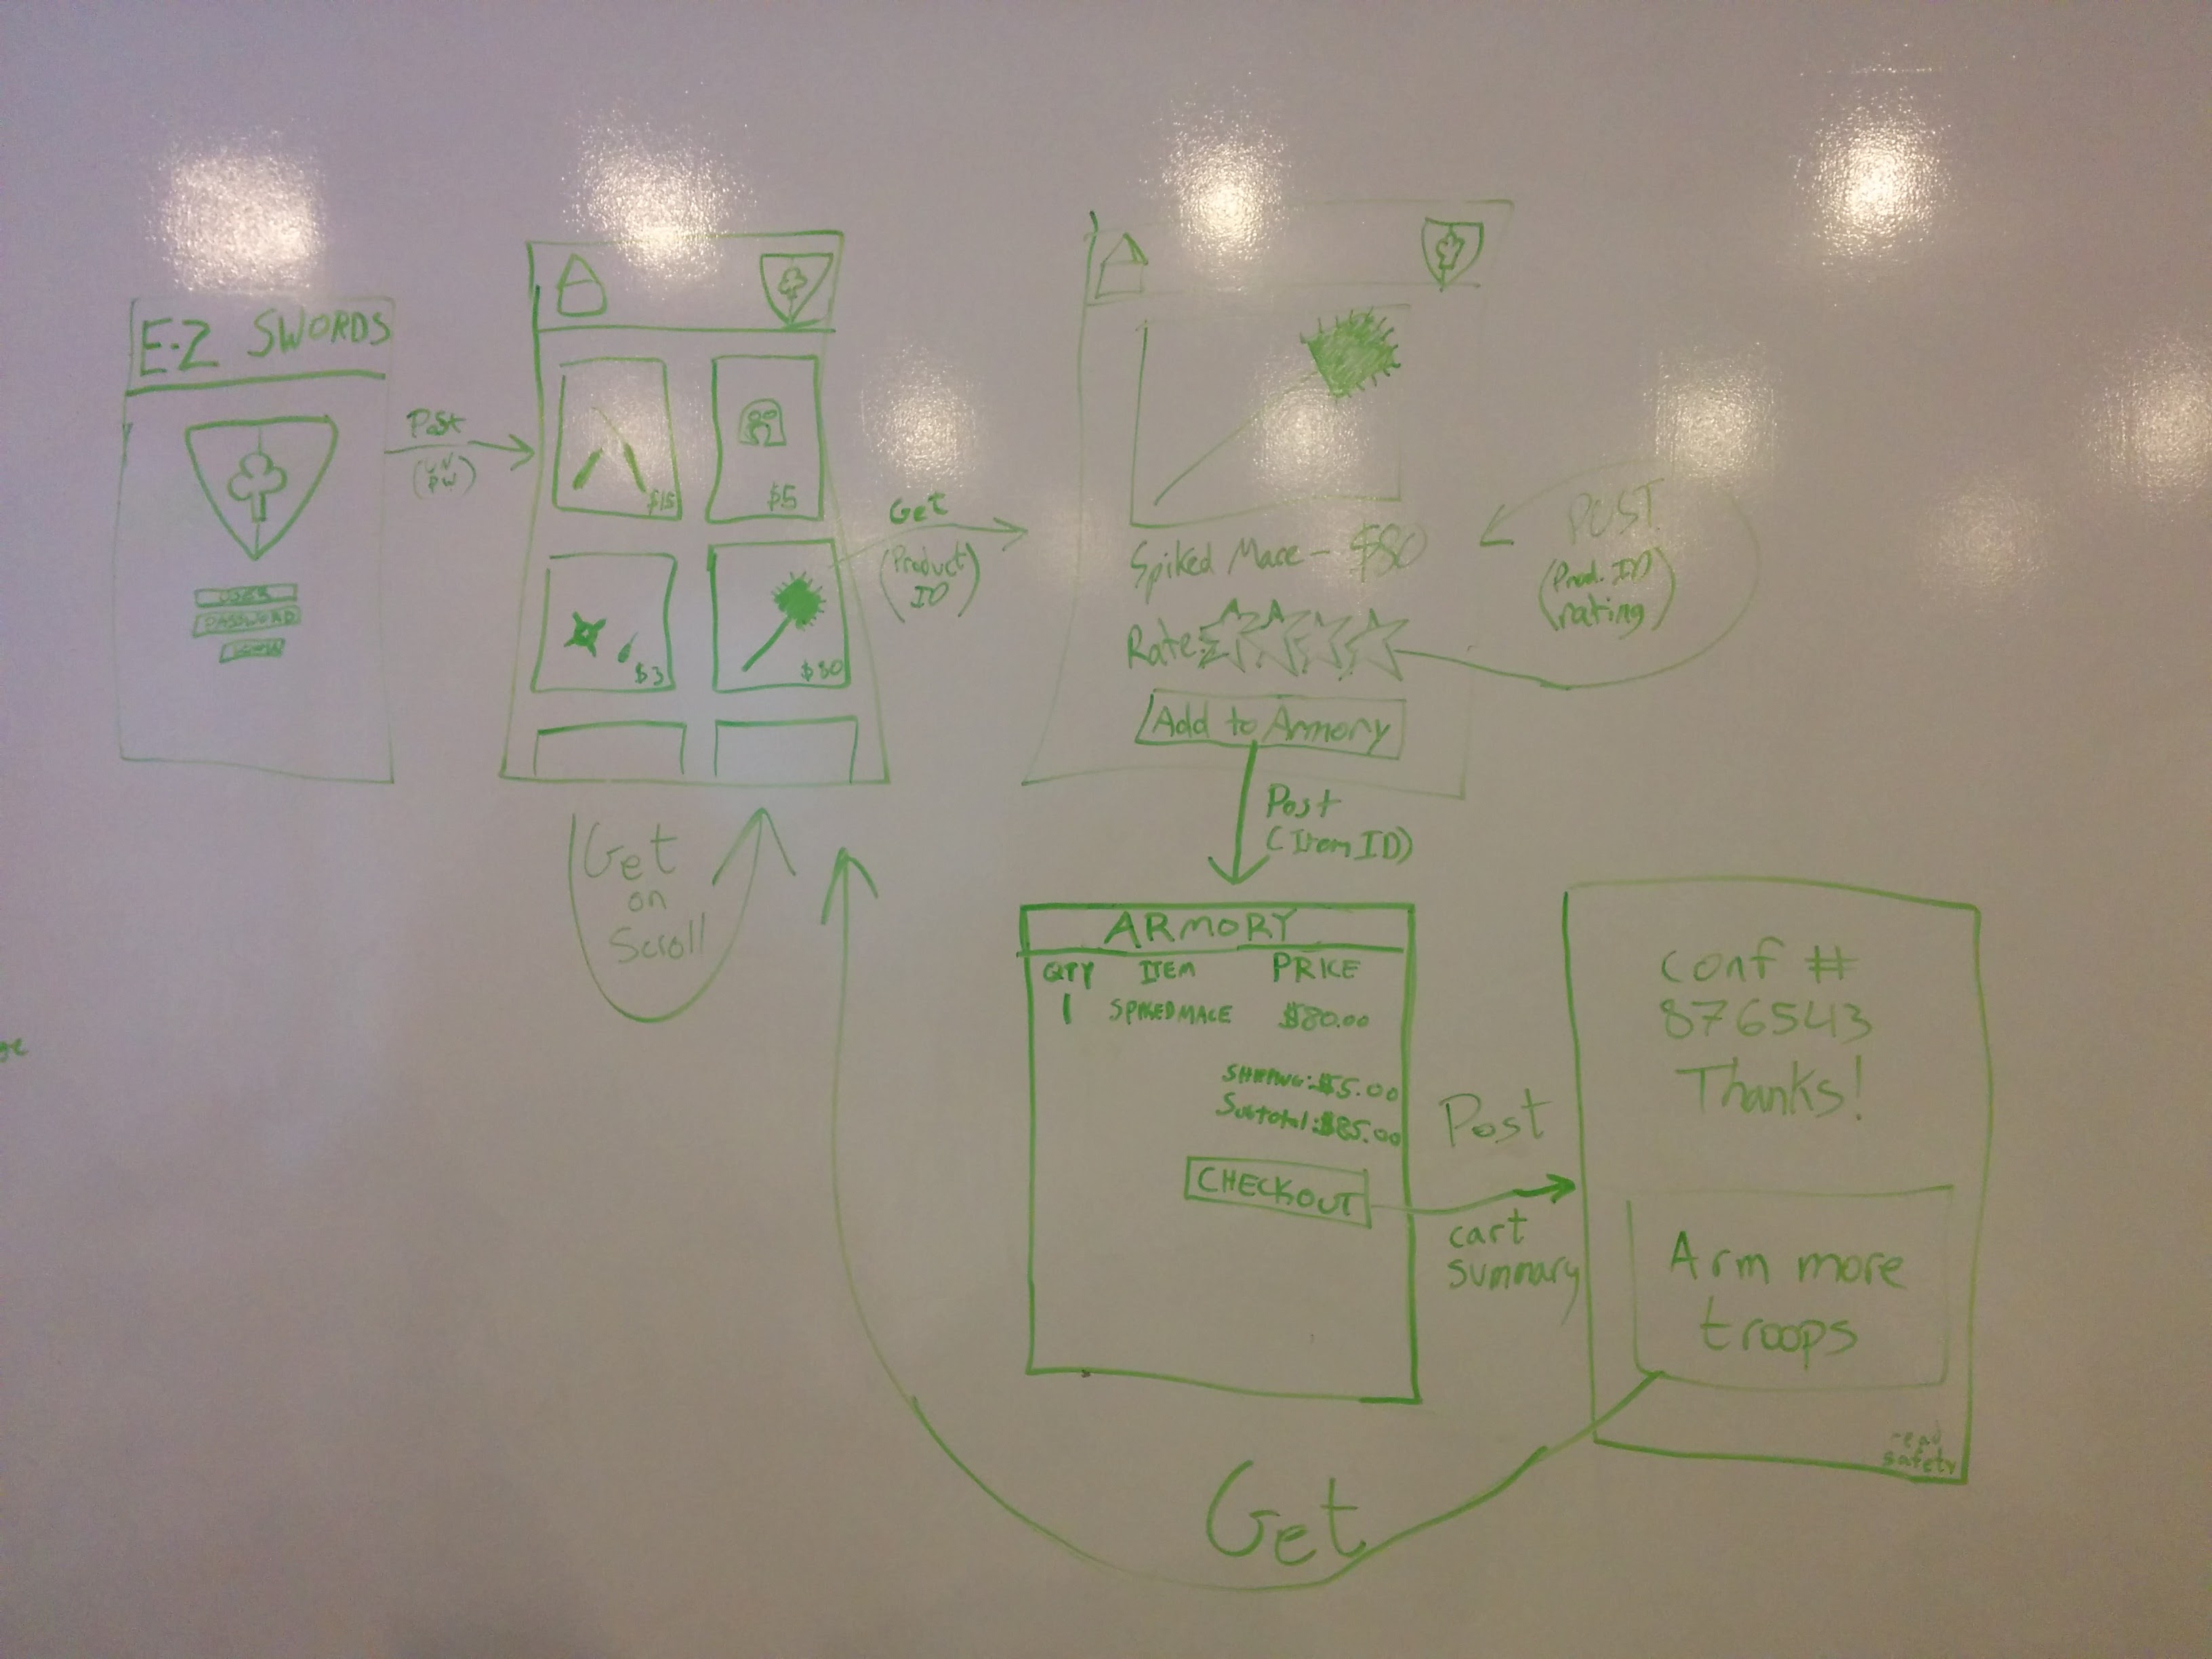 E-Z SWORDS
USER
PASSWORD
LOGIN
Post
(UN
PW)
$15
$5
$3
$80
Get
on
Scroll
Get
(Product
ID)
Spiked Mace - $80
Rate:
Add to Armory
POST
(Prod. ID
rating)
Post
(Item ID)
ARMORY
QTY ITEM PRICE
1 SPIKED MACE $80.00
SHIPPING: $5.00
Subtotal: $85.00
CHECKOUT
Post
cart
summary
Conf #
876543
Thanks!
Arm more
troops
read
safety
Get
ge